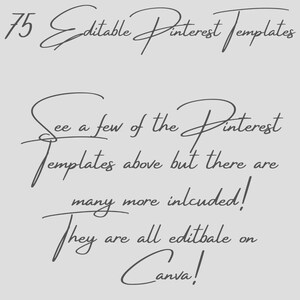 75 Editable Pinterest Templates
See a few of the Pinterest
Templates above but there are
many more inlcuded!
They are all editbale on
Canva!